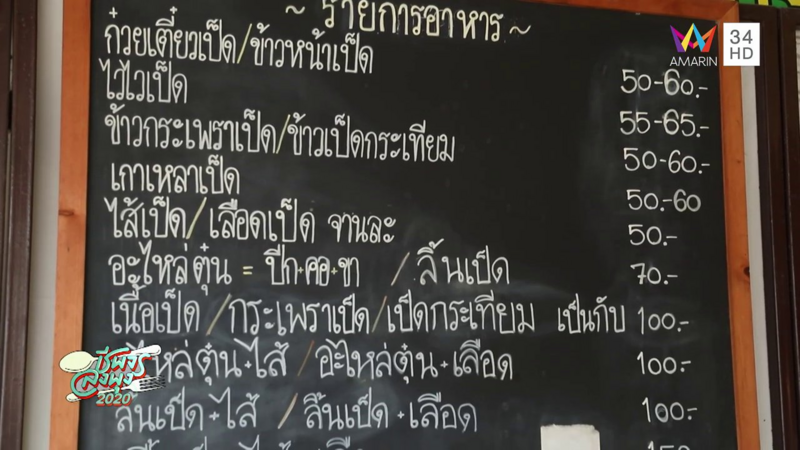 ~ รายการอาหาร ~
ก๋วยเตี๋ยวเป็ด/ข้าวหน้าเป็ด 50-60.-
ไวไวเป็ด 55-65.-
ข้าวกระเพราเป็ด/ข้าวเป็ดกระเทียม 50-60.-
เกาเหลาเป็ด 50.-60
ไส้เป็ด/เลือดเป็ด จานละ 50.-
อะไหล่ตุ๋น = ปีก+คอ+ขา / ลิ้นเป็ด 70.-
เนื้อเป็ด/กระเพราเป็ด/เป็ดกระเทียม เป็นกับ 100.-
อะไหล่ตุ๋น+ไส้ / อะไหล่ตุ๋น+เลือด 100.-
ลิ้นเป็ด+ไส้ / ลิ้นเป็ด+เลือด 100.-
AMARIN
34
HD
ชีพจร
ลงพุง
2020